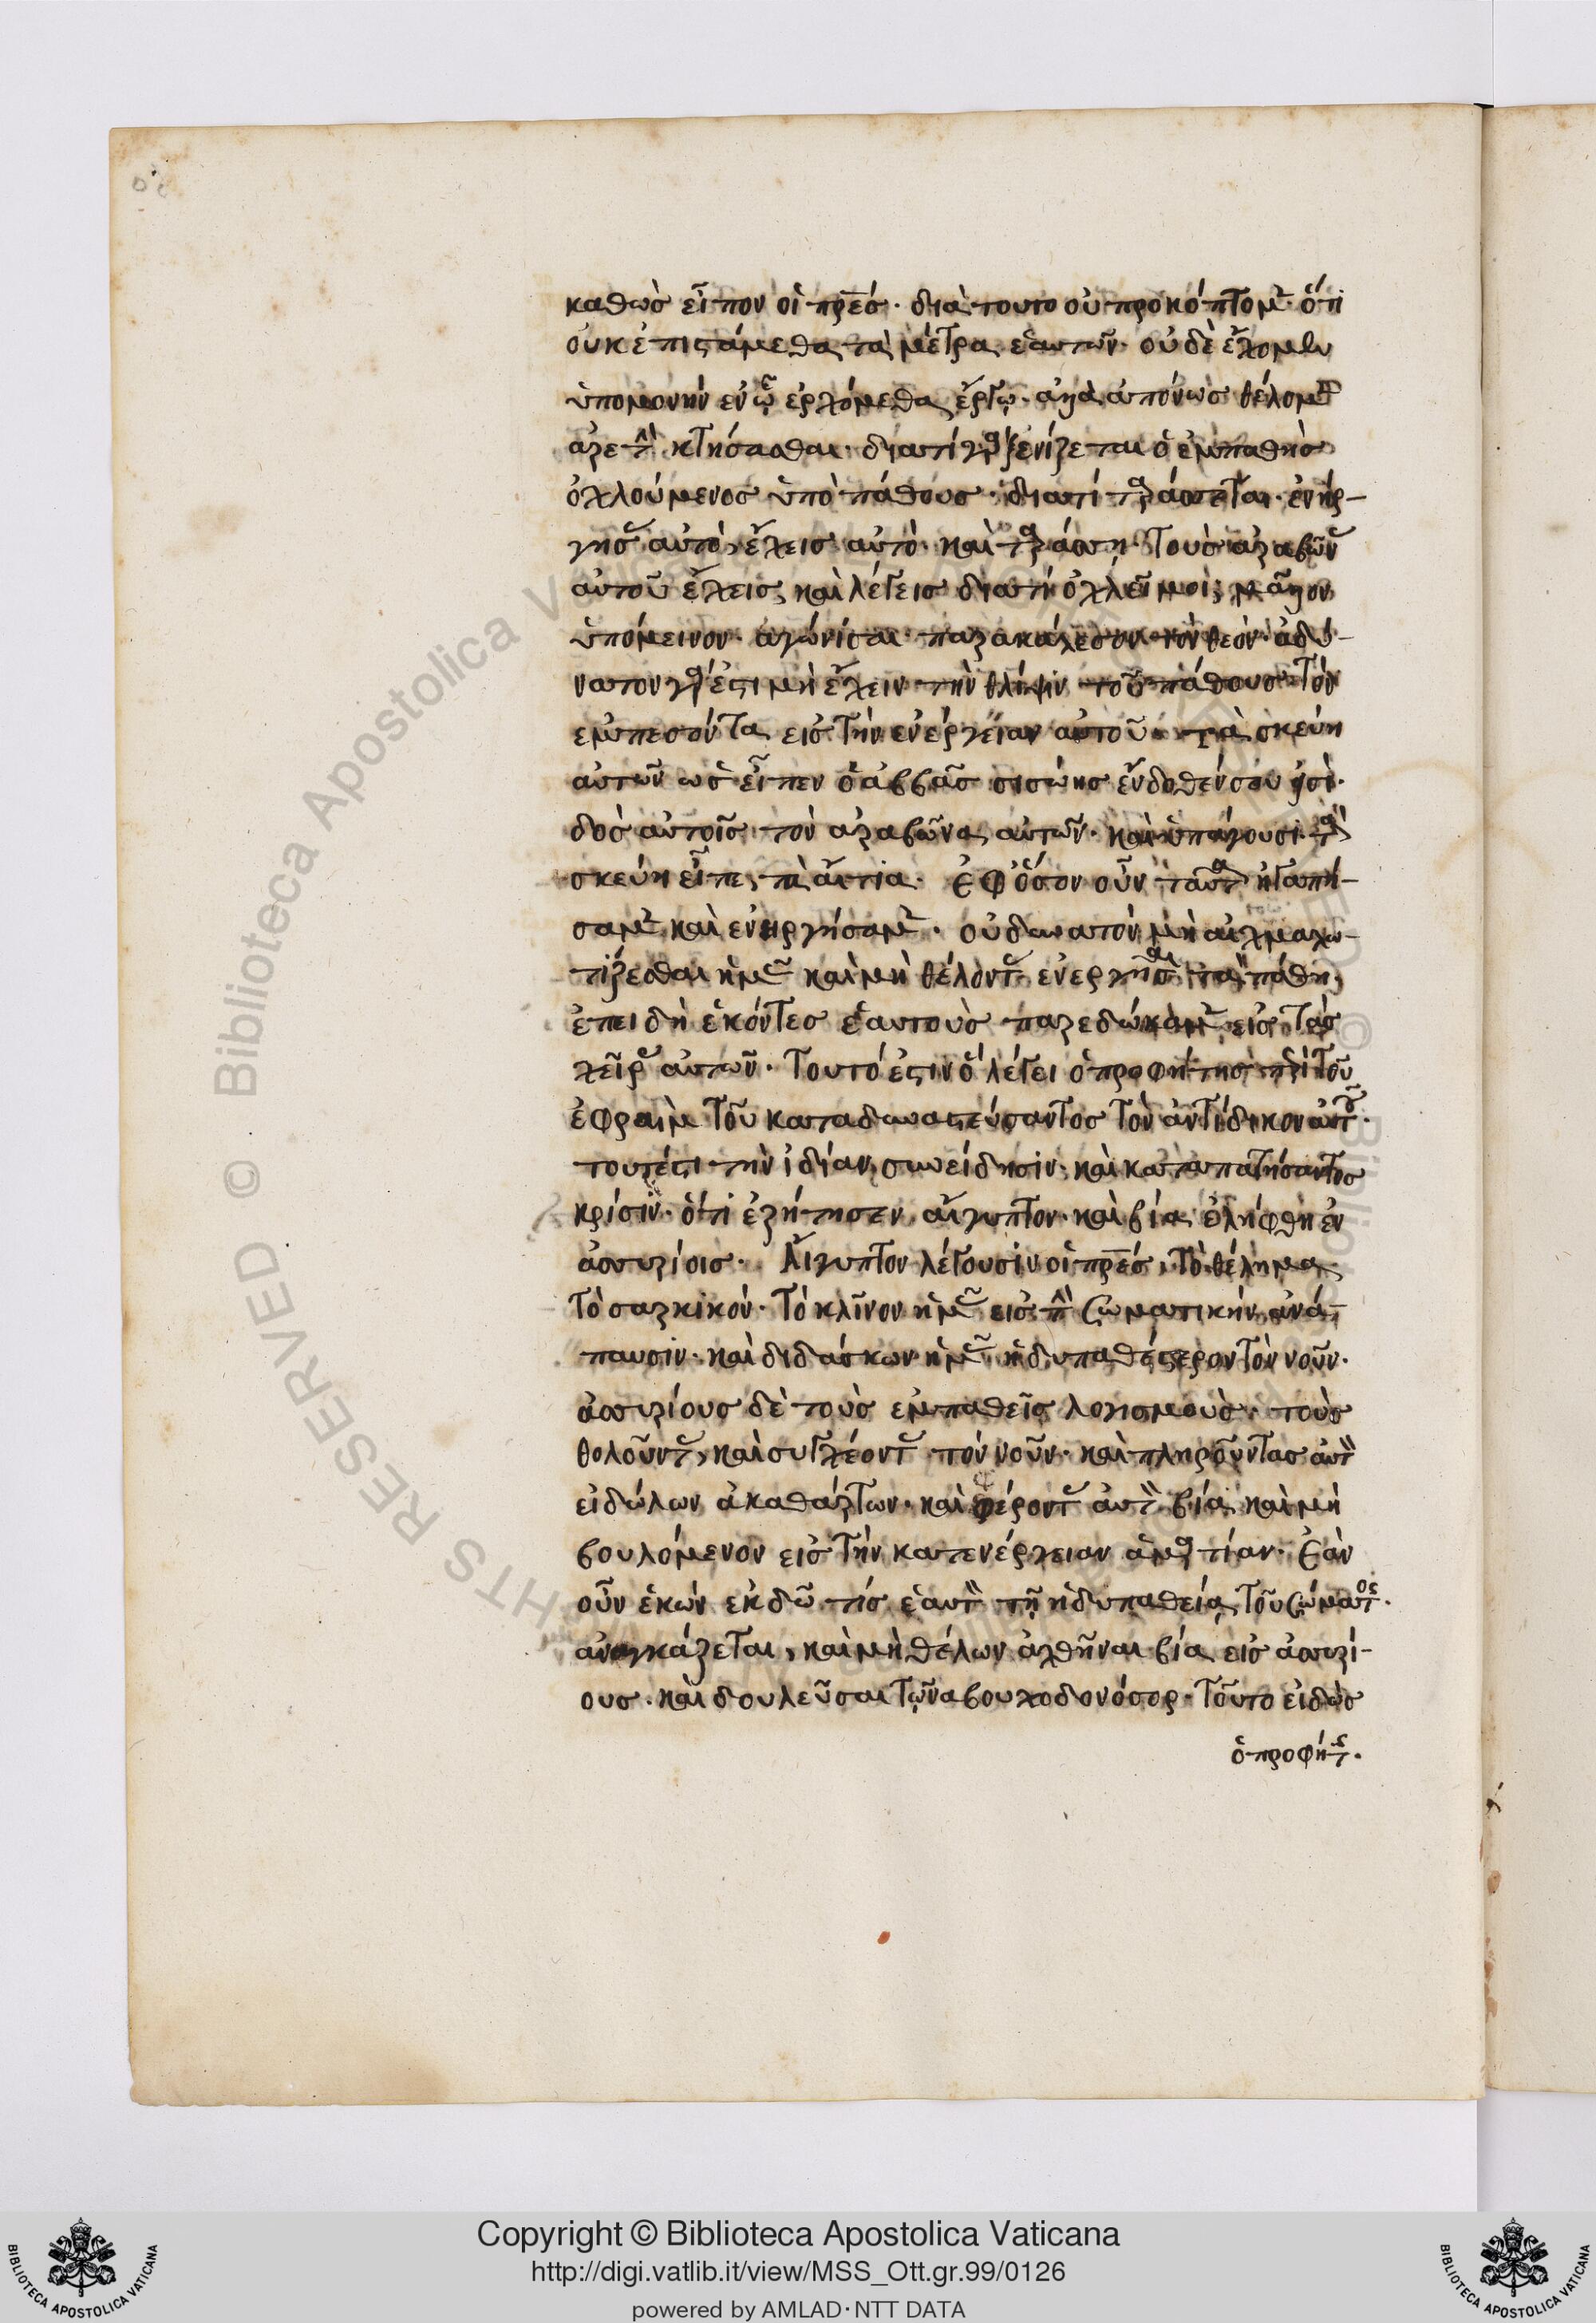 καθὼσ εἶπον οἱ πρ̅εσ· διὰ τουτο οὐ προκόπτομ· ὅτι
οὐκ ἐπιστάμεθα τὰ μέτρα ἑαυτῶν· οὐδὲ ἔχομεν
ὑπομονὴν ἐν ᾧ ἐρχόμεθα ἔργῳ· ἀλλὰ ἀπόνωσ θέλομ
ἀρετὴν κτήσασθαι· διατί γὰρ ξενίζεται ὁ ἐμπαθὴσ
ὀχλούμενοσ ὑπὸ πάθουσ· διατί ταράσσεται· ἐνήρ-
γησασ αὐτὸ, ἔχεισ αὐτὸ· καὶ ταράσση· Τουσ ἀραβῶνασ
αὐτοῦ ἔχεισ καὶ λέγεισ διατί ὀχλεῖ μοι; μᾶλλον
ὑπόμεινον· ἀγώνισαι· παρακάλεσον τὸν θεόν· ἀδύ-
νατον γάρ ἐστι μὴ ἔχειν τὴν θλίψιν τοῦ πάθουσ Τὸν
ἐμπεσόντα εἰσ Τὴν ἐνέργειαν αὐτοῦ· τὰ σκεύη
αὐτῶν ὡσ εἶπεν ὁ ἀββᾶσ σισώησ ἔνδοθέν σου εἰσὶ·
δὸσ αὐτοῖσ τὸν ἀραβῶνα αὐτῶν· καὶ ὑπάγουσι· τὰ
σκεύη εἶπε, τὰ αἴτια· Ἐφ ὅσον οὖν ταῦτα ἠγαπή-
σαμ καὶ ἐνηργήσαμ· οὐ δυνατὸν μὴ αἰχμαλω-
τίζεσθαι ἡμᾶσ καὶ μὴ θέλοντασ ἐνεργῆσαι τὰ πάθη,
ἐπειδὴ ἑκόντεσ ἑαυτοὺσ παρεδώκαμ εἰσ Τὰσ
χεῖρασ αὐτῶν· Τουτό ἐστιν ὃ λέγει ὁ προφήτησ περὶ Τοῦ
ἐφραῒμ Τοῦ καταδυναστεύσαντοσ Τὸν ἀντίδικον αὐτοῦ·
τουτέστι τὴν ἰδίαν συνείδησιν· καὶ καταπατήσαντοσ
κρίσιν· ὅτι ἐζήτησεν αἴγυπτον· καὶ βία ἐλήφθη ἐν
ἀσσυρίοισ· Αἴγυπτον λέγουσιν οἱ πρ̅εσ, Τὸ θέλημα
Τὸ σαρκικόν· Τὸ κλῖνον ἡμᾶσ εἰσ τὴν σωματικὴν ἀνά-
παυσιν· καὶ διδάσκων ἡμᾶσ ἡδυπαθέστερον Τὸν νοῦν·
ἀσσυρίουσ δὲ τοὺσ ἐμπαθεῖσ λογισμοὺσ· τοὺσ
θολοῦντασ, καὶ συγχέοντασ τὸν νοῦν· καὶ πληροῦντασ αὐτὸν
εἰδώλων ἀκαθάρτων· καὶ φέροντασ αὐτὸν βία καὶ μὴ
βουλόμενον εἰσ Τὴν κατενέργειαν ἁμαρτίαν· Ἐὰν
οὖν ἑκὼν ἐκδῶ τίσ ἑαυτὸν τῇ ἡδυπαθεία Τοῦ σώματοσ·
ἀναγκάζεται, καὶ μὴ θέλων ἀχθῆναι βία εἰσ ἀσσυρί-
ουσ· καὶ δουλεῦσαι Τῷ ναβουχοδονόσορ· Τοῦτο εἰδὼσ
ὁ προφήτησ·
Copyright © Biblioteca Apostolica Vaticana
http://digi.vatlib.it/view/MSS_Ott.gr.99/0126
powered by AMLAD·NTT DATA
BIBLIOTECA APOSTOLICA VATICANA
BIBLIOTECA APOSTOLICA VATICANA